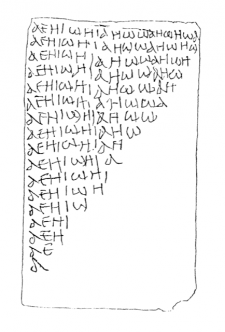 αΕΗΙωΗΙαΗωωαΗωΗωα
αΕΗΙωΗΙαΗωωαΗωΗω
αΕΗΙωΗΙαΗωωαΗωΗ
αΕΗΙωΗΙαΗωωαΗω
αΕΗΙωΗΙαΗωωαΗ
αΕΗΙωΗΙαΗωωα
αΕΗΙωΗΙαΗωω
αΕΗΙωΗΙαΗω
αΕΗΙωΗΙαΗ
αΕΗΙωΗΙα
αΕΗΙωΗΙ
αΕΗΙωΗ
αΕΗΙω
αΕΗΙ
αΕΗ
αΕ
α